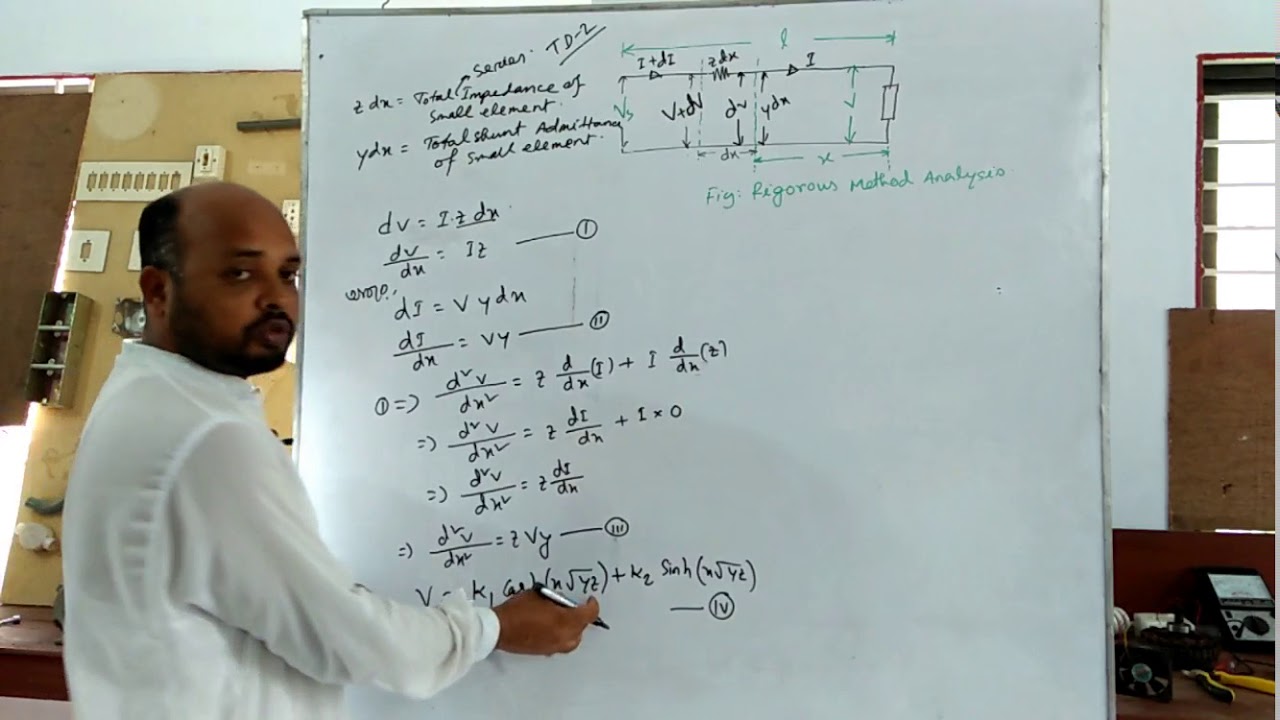 TD-2
series.
z dx = Total Impedance of
small element.
y dx = Total shunt Admittance
of small element.
l
I+dI
z dx
I
Vs
V+dV
dV
y dx
V
dx
x
Fig: Rigorous Method Analysis.
dv = I.z dx.
dv/dx = Iz — I
dI = V y dx
dI/dx = Vy — II
① => d²v/dx² = z d/dx (I) + I d/dx (z)
=> d²v/dx² = z dI/dx + I × 0
=> d²v/dx² = z dI/dx
=> d²v/dx² = z Vy — III
V = K₁ Cosh(x√yz) + K₂ Sinh(x√yz)
— IV